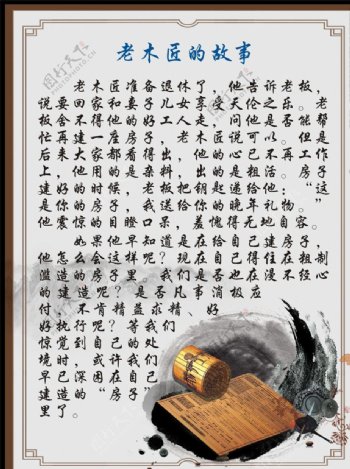 老木匠的故事
老木匠准备退休了，他告诉老板，
说要回家和妻子儿女享受天伦之乐。老
板舍不得他的好工人走，问他是否能帮
忙再建一座房子，老木匠说可以。但是
后来大家都看得出，他的心已不再工作
上，他用的是杂料，出的是粗活。房子
建好的时候，老板把钥匙递给他：“这
是你的房子，我送给你的晚年礼物。”
他震惊的目瞪口呆，羞愧得无地自容。
如果他早知道是在给自己建房子，
他怎么会这样呢？现在自己得住在粗制
滥造的房子里！我们是否也在漫不经心
的建造呢？是否凡事消极应
付、不肯精益求精、好
好执行呢？等我们
惊觉到自己的处
境时，或许我们
早已深困在自己
建造的“房子”
里了。